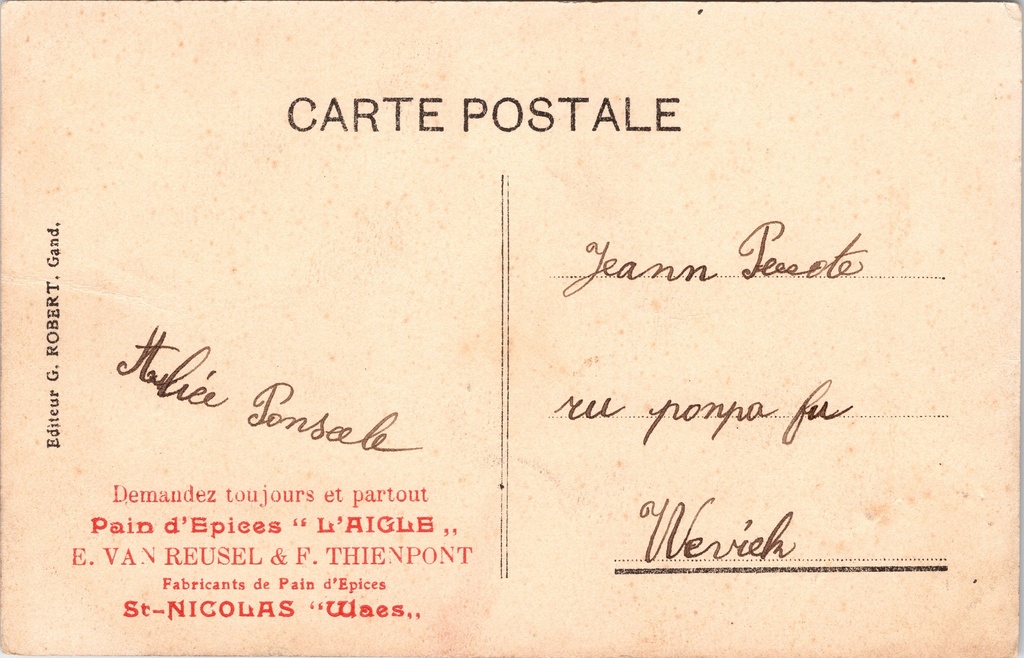 CARTE POSTALE
Editeur G. ROBERT. Gand.
Ponseele
Demandez toujours et partout
Pain d'Epices “ L'AIGLE „
E. VAN REUSEL & F. THIENPONT
Fabricants de Pain d'Epices
St-NICOLAS “Waes„
Jeann
ru ponpa fu
Wevick